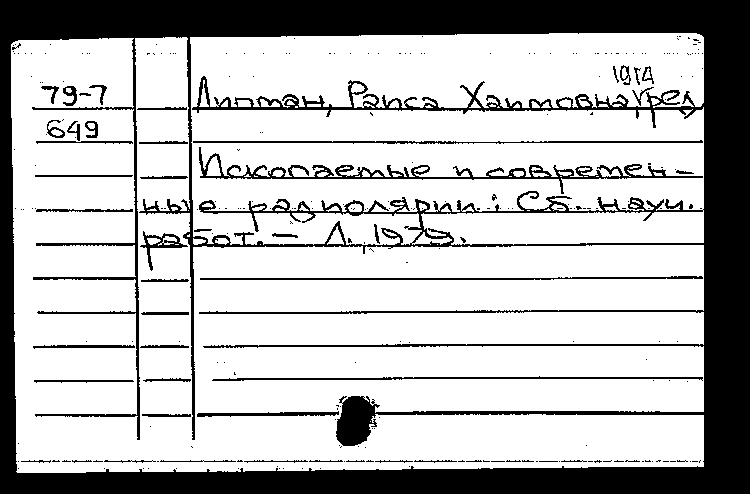 1914
79-7 Липман, Раиса Хаимовна, ред
649
Ископаемые и современ-
ные радиолярии: Сб. науч.
работ. — Л., 1979.